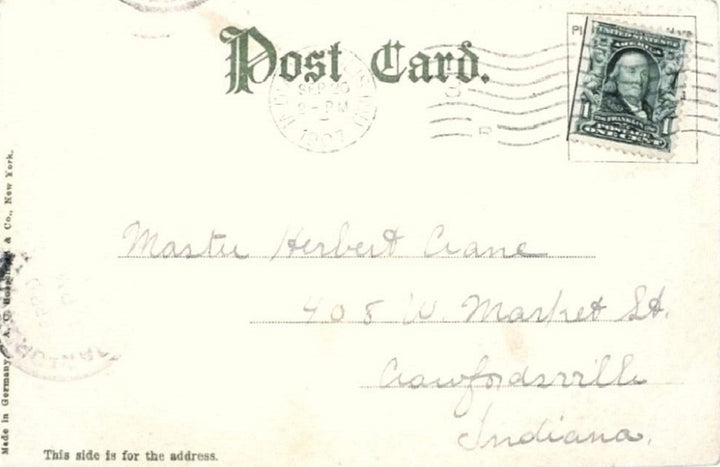 Post Card.
SEP 20
2-PM
1907
UNITED STATES OF AMERICA
FRANKLIN
1 1
POSTAGE
ONE CENT
Master Herbert Crane
408 W. Market St.
Crawfordsville
Indiana.
This side is for the address.
Made in Germany. A. C. & Co., New York.